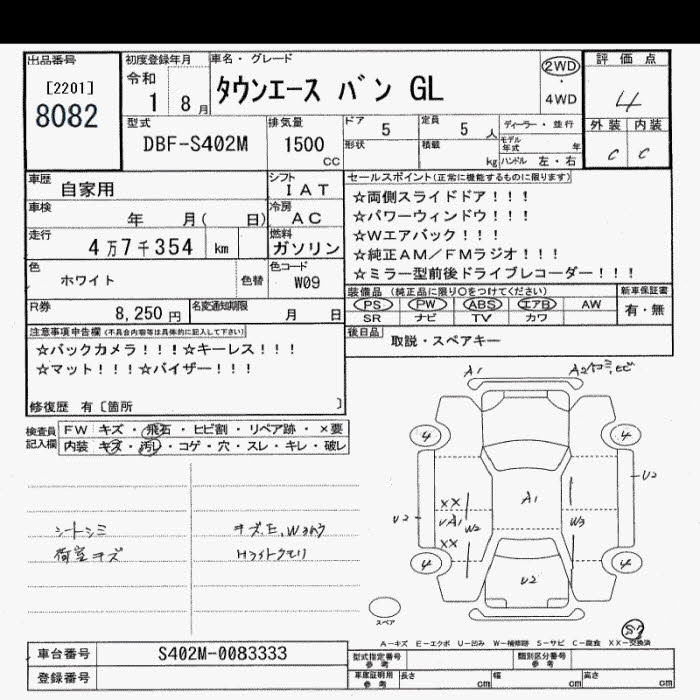 出品番号
[2201]
8082
初度登録年月
令和
1 8月
車名・グレード
タウンエース バン GL
2WD
・
4WD
評価点
4
外装 内装
C C
型式
DBF-S402M
排気量
1500
CC
ドア 5
定員 5 人
形状
積載 kg
ディーラー・並行
モデル年式 年
ハンドル 左・右
車歴
自家用
シフト
IAT
車検
年 月( 日)
冷房
AC
走行
4万7千354 km
燃料
ガソリン
色
ホワイト
色替
色コード
W09
R券
8,250 円
名変通知期限
月 日
セールスポイント(正常に機能するものに限り)
☆両側スライドドア!!!
☆パワーウィンドウ!!!
☆Wエアバック!!!
☆純正AM/FMラジオ!!!
☆ミラー型前後ドライブレコーダー!!!
装備品(純正品に限り○をつけてください)
新車保証書
PS PW ABS エアB AW
SR ナビ TV カワ
有・無
後日品
取説・スペアキー
注意事項申告欄(不具合内容等は具体的に記入して下さい)
☆バックカメラ!!!☆キーレス!!!
☆マット!!!☆バイザー!!!
修復歴 有〔箇所 〕
検査員
記入欄
FW キズ・飛石・ヒビ割・リペア跡・×要
内装 キズ・汚レ・コゲ・穴・スレ・キレ・破レ
シートシミ
荷室キズ
キズ.E.Wヨウ
Hライトクモリ
A1
A2
4
4
U2
XX
A1
U2
UA1
W2
W3
XX
4
4
U2
スペア
S7
A−キズ E−エクボ U−凹み W−補修跡 S−サビ C−腐食 XX−交換済
車台番号
S402M-0083333
登録番号
型式指定番号
参考
類別区分番号
参考
車庫証明用
参考
長さ cm
幅 cm
高さ cm